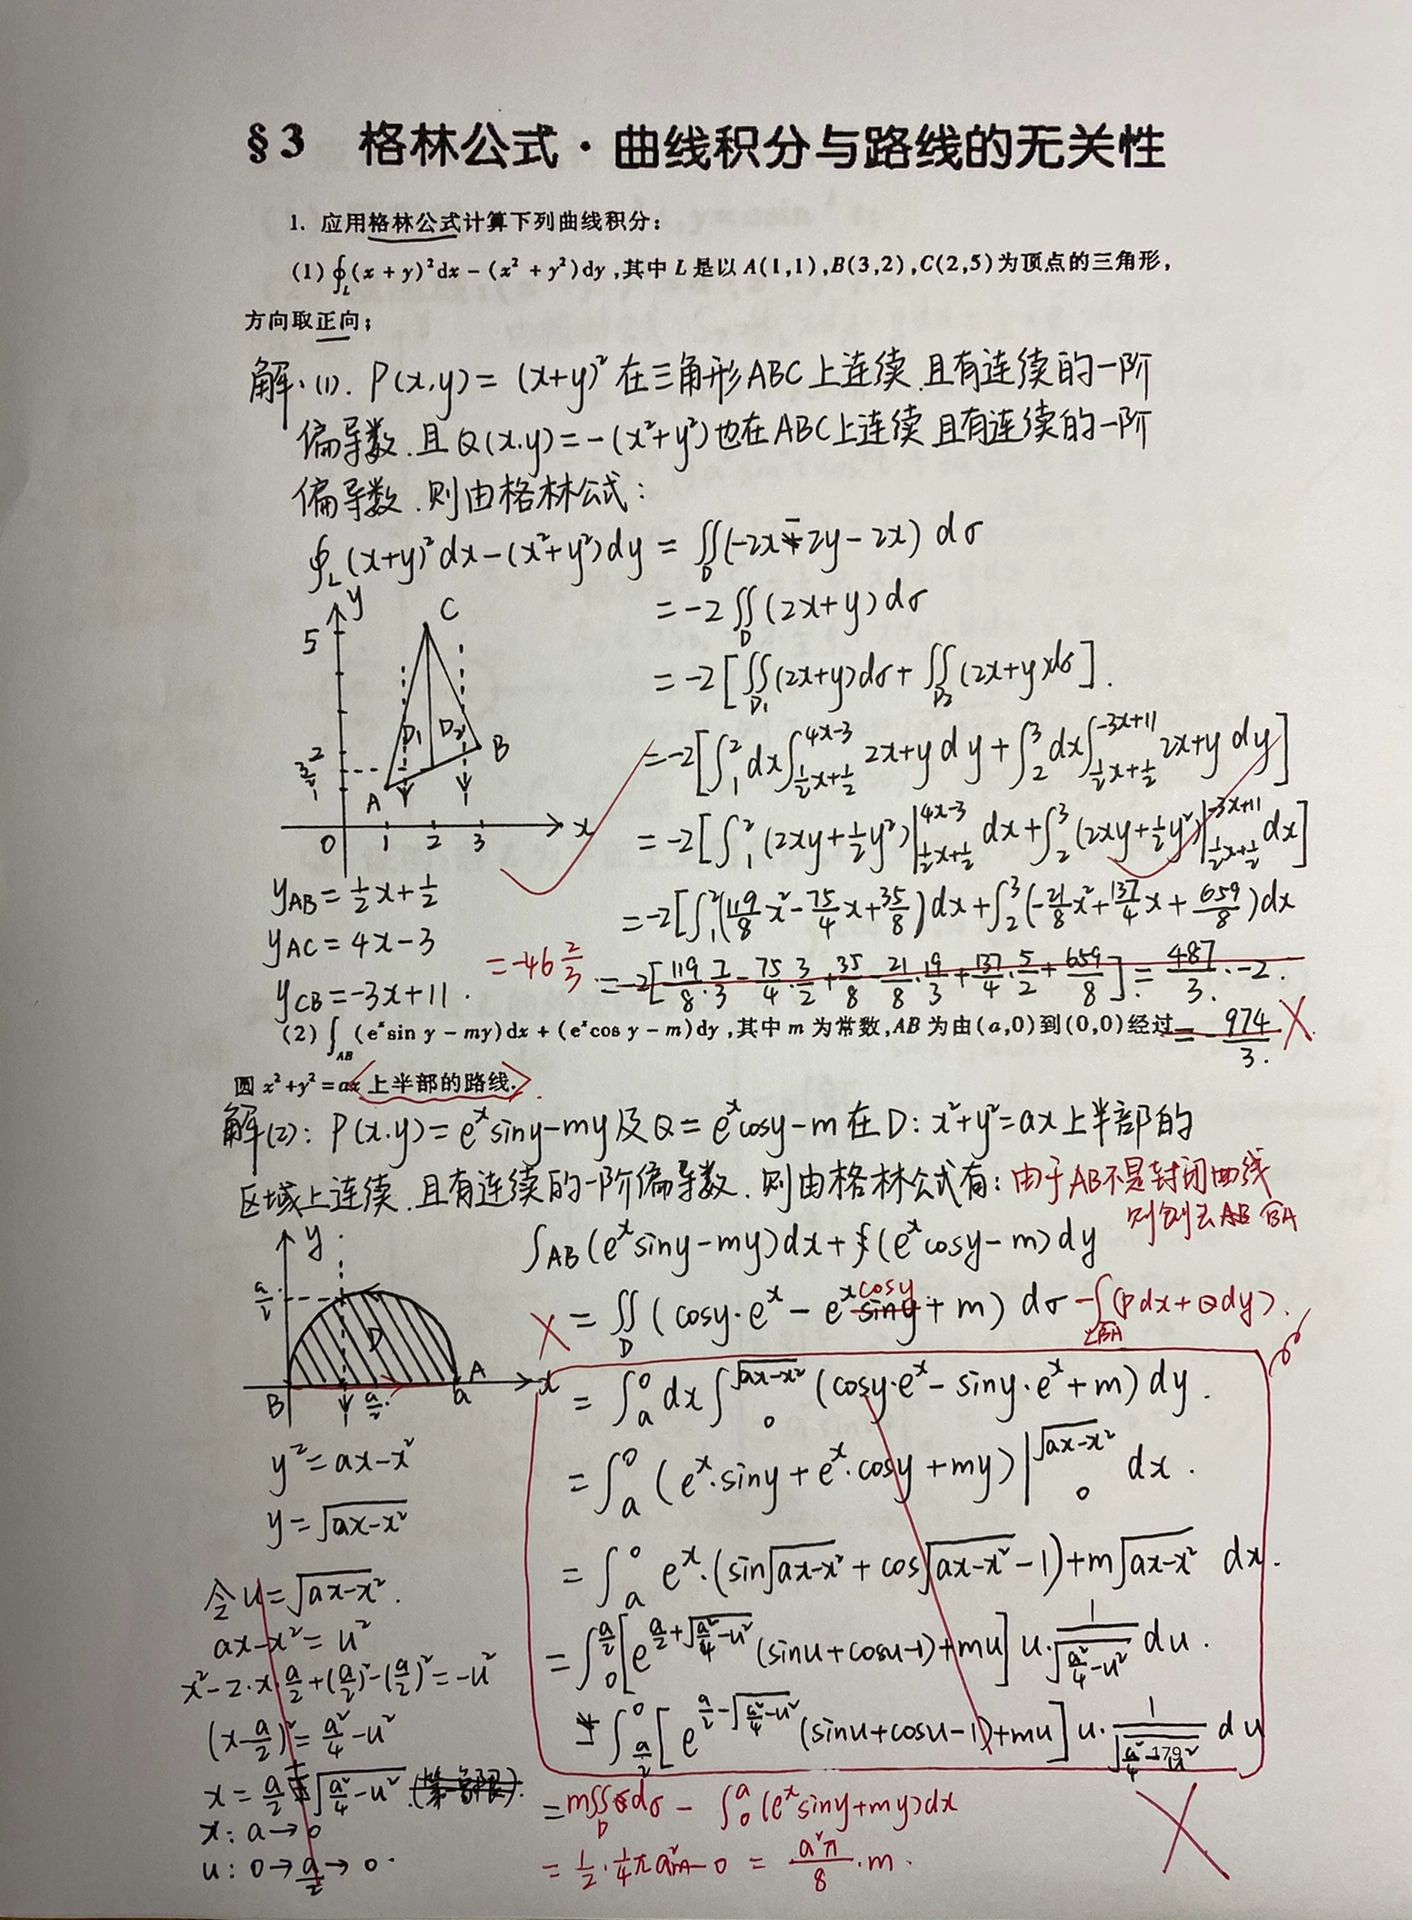 §3 格林公式·曲线积分与路线的无关性
1. 应用格林公式计算下列曲线积分:
(1) ∮_L (x+y)²dx-(x²+y²)dy,其中L是以A(1,1),B(3,2),C(2,5)为顶点的三角形,
方向取正向;
解:(1). P(x,y)=(x+y)²在三角形ABC上连续.且有连续的一阶
偏导数.且Q(x.y)=-(x²+y²)也在ABC上连续且有连续的一阶
偏导数.则由格林公式:
∮_L (x+y)²dx-(x²+y²)dy = ∬_D(-2x-2y-2x) dσ
= -2∬_D(2x+y)dσ
= -2[∬_D₁(2x+y)dσ+∬_D₂(2x+y)dσ].
= -2[∫₁²dx∫_{½x+½}^{4x-3} 2x+y dy+∫₂³dx∫_{½x+½}^{-3x+11} 2x+y dy]
= -2[∫₁²(2xy+½y²)|_{½x+½}^{4x-3} dx+∫₂³(2xy+½y²)|_{½x+½}^{-3x+11} dx]
= -2[∫₁²(119/8 x²-75/4 x+35/8)dx+∫₂³(-21/8 x²+137/4 x+659/8)dx
= -46 2/3 = -2[119/8·7/3-75/4·3/2+35/8-21/8·19/3+137/4·5/2+659/8] = 487/3 · -2.
= -974/3. ×
y C 5 2 3/2 1 D₁ D₂ B A 0 1 2 3 x
y_AB=½x+½
y_AC=4x-3
y_CB=-3x+11.
(2) ∫_AB (eˣsin y-my)dx+(eˣcos y-m)dy,其中m为常数,AB为由(a,0)到(0,0)经过
圆x²+y²=ax上半部的路线.
解(2): P(x.y)=eˣsiny-my及Q=eˣcosy-m在D:x²+y²=ax上半部的
区域上连续.且有连续的一阶偏导数.则由格林公式有: 由于AB不是封闭曲线
∫_AB(eˣsiny-my)dx+(eˣcosy-m)dy
× = ∬_D(cosy·eˣ-eˣcosy siny+m) dσ-∫_BA(Pdx+Qdy).
= ∫ₐ⁰dx∫₀^{√(ax-x²)}(cosy·eˣ-siny·eˣ+m)dy.
= ∫ₐ⁰(eˣ·siny+eˣ·cosy+my)|₀^{√(ax-x²)} dx.
= ∫ₐ⁰ eˣ·(sin√(ax-x²)+cos√(ax-x²)-1)+m√(ax-x²) dx.
= ∫₀^{a/2}[e^{a/2+√(a²/4-u²)}(sinu+cosu-1)+mu]u·1/√(a²/4-u²) du.
+∫_{a/2}^0[e^{a/2-√(a²/4-u²)}(sinu+cosu-1)+mu]u·1/√(a²/4-u²) du
= m∬_D dσ-∫₀ᵃ(eˣsiny+my)dx
= ½·¼πa²m-0 = a²π/8·m.
y a/2 D A B a/2 a x
y²=ax-x²
y=√(ax-x²)
令u=√(ax-x²).
ax-x²=u²
x²-2·x·a/2+(a/2)²-(a/2)²=-u²
(x-a/2)²=a²/4-u²
x=a/2±√(a²/4-u²).
x: a→0
u: 0→a/2→0.
179